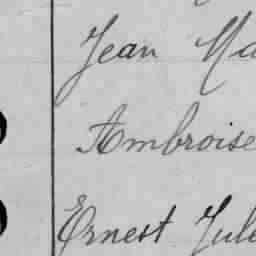 Jean Ma
Ambroise
Ernest Jule